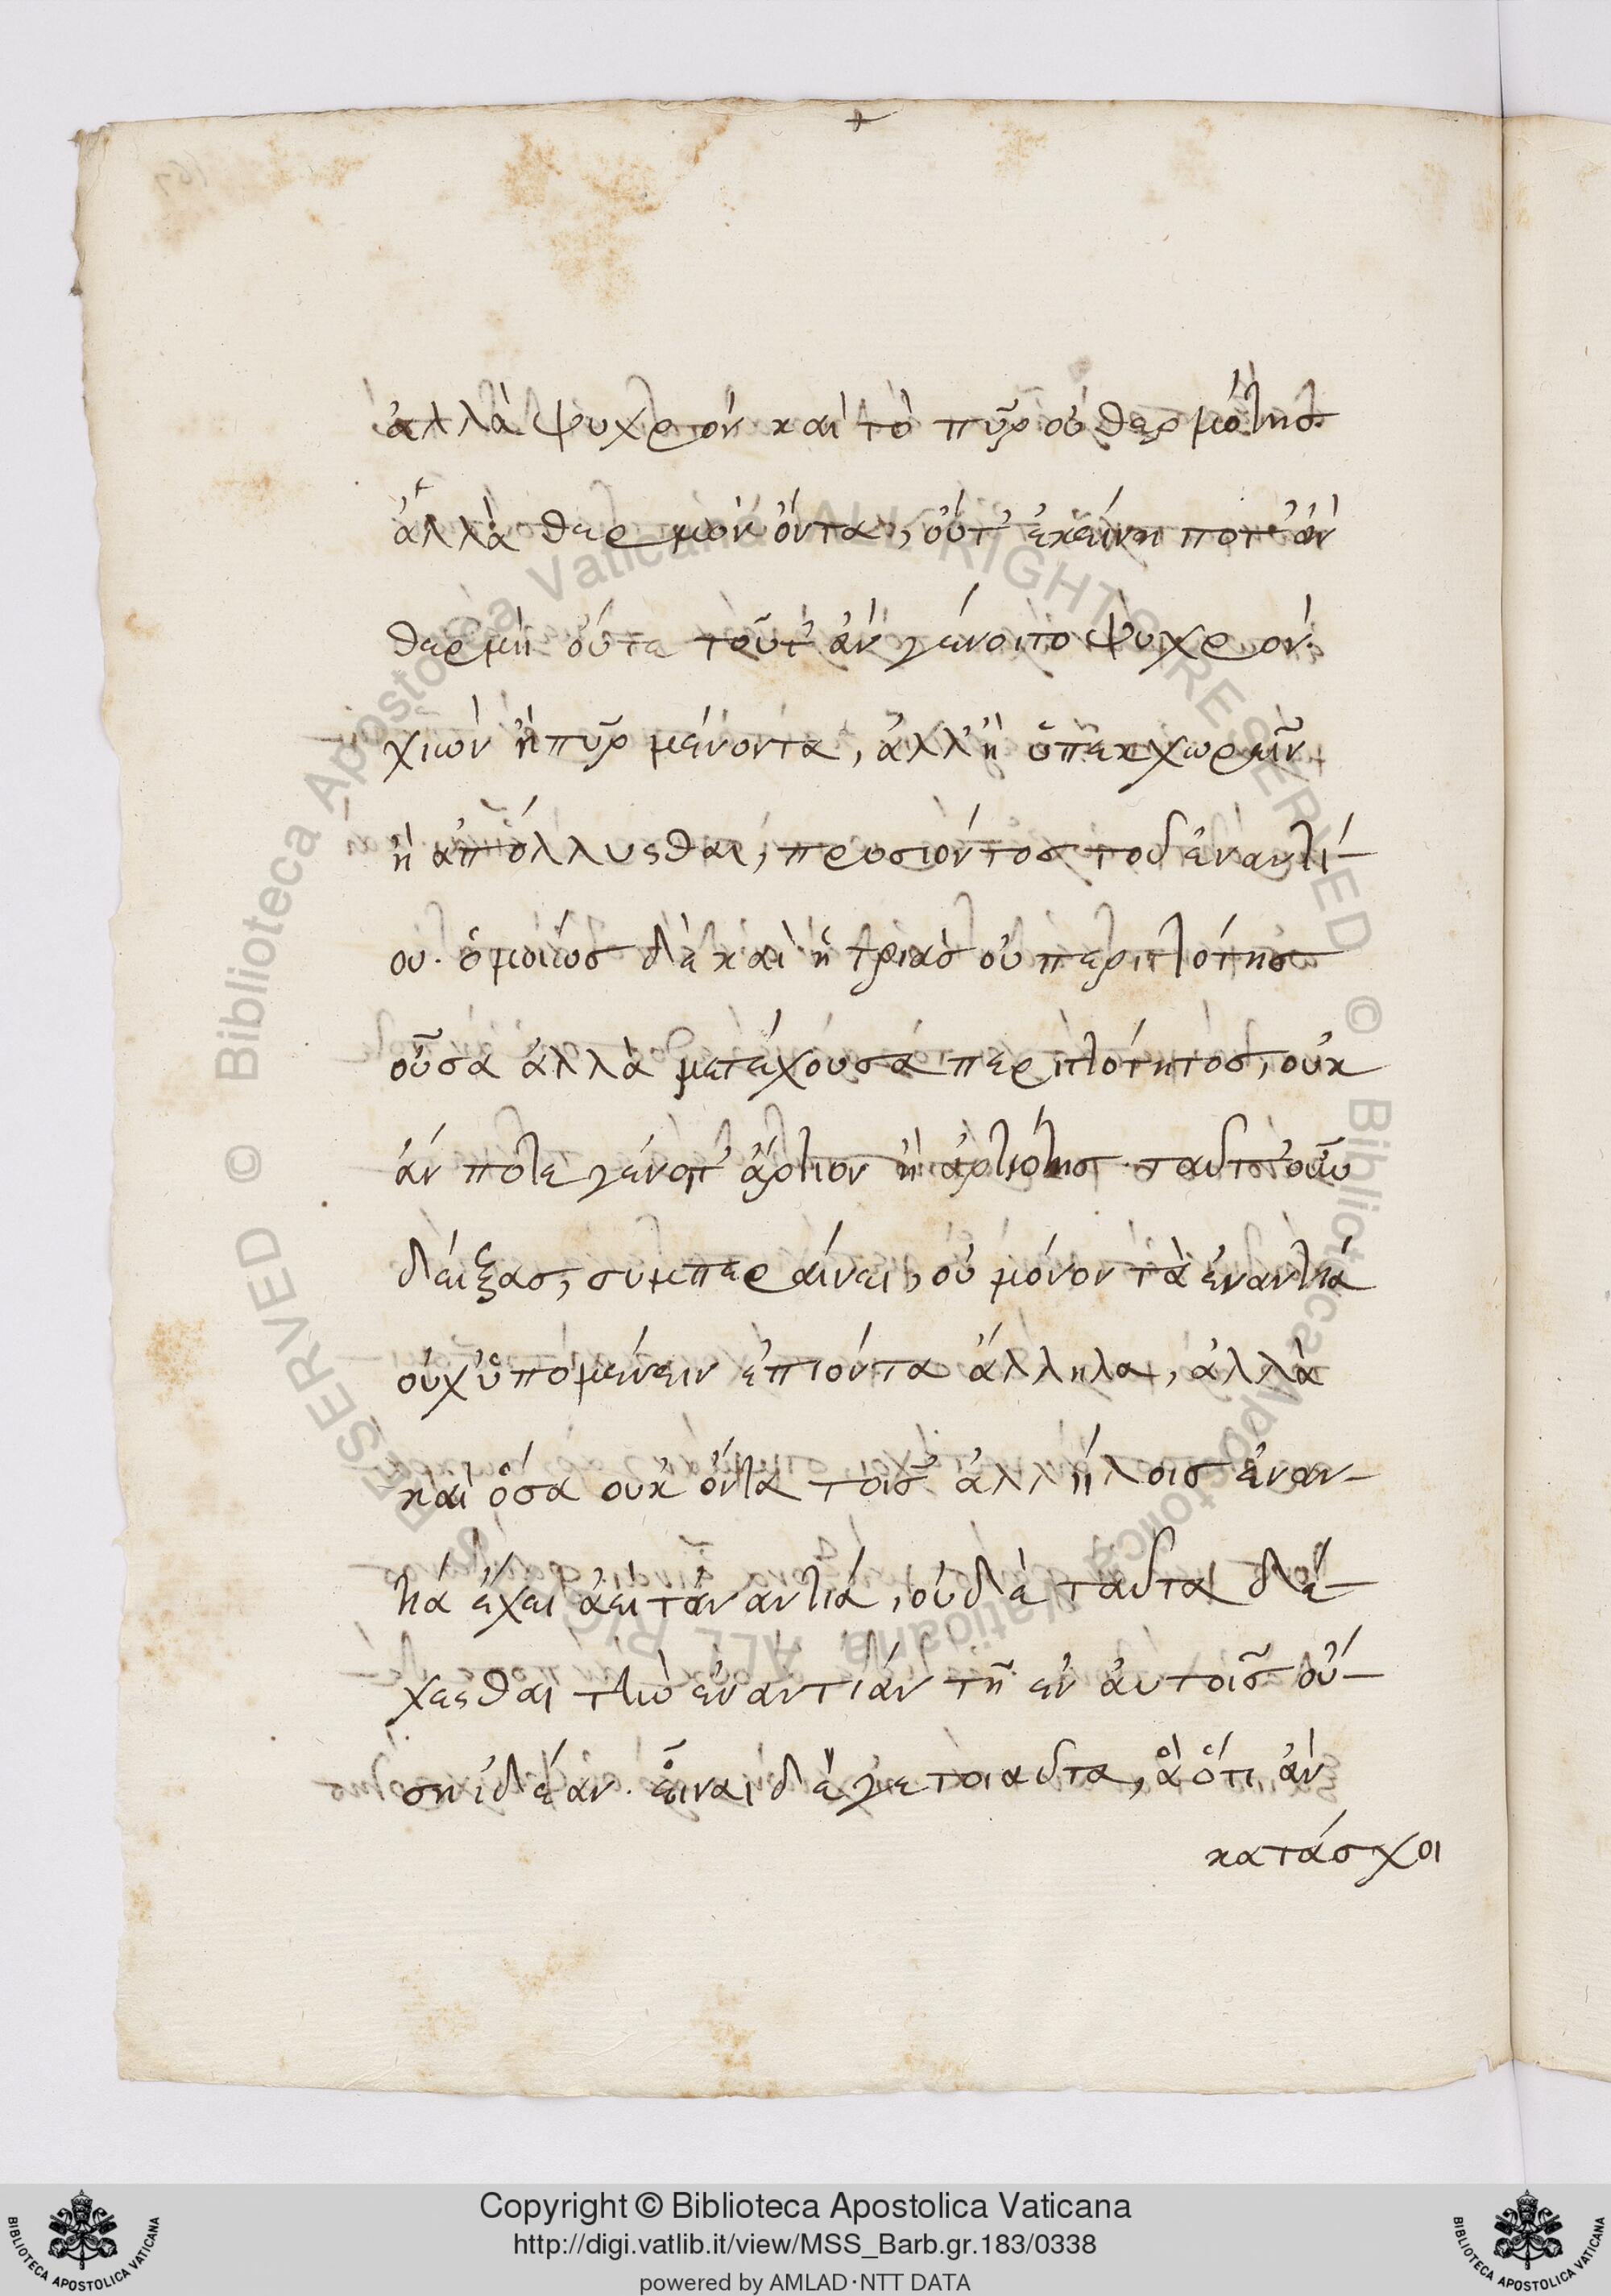 ἀλλὰ ψυχρὸν καὶ τὸ πῦρ οὐ θερμότης
ἀλλὰ θερμὸν ὄντα, οὔτ' ἐκείνη ποτ' ἂν
θερμὴ οὔτε τοῦτ' ἂν γένοιτο ψυχρὸν.
χιὼν ἢ πῦρ μένοντα, ἀλλ' ἢ ὑπεκχωρεῖν
ἢ ἀπόλλυσθαι, προσιόντος τοῦ ἐναντί-
ου. ὁμοίως δὲ καὶ ἡ τριὰς οὐ περιττότης
οὖσα ἀλλὰ μετέχουσα περιττότητος, οὐκ
ἄν ποτε γένοιτ' ἄρτιον ἢ ἀρτιότης. ταῦτ' οὖν
δείξας, συμπεραίνει, οὐ μόνον τὰ ἐναντία
οὐχ ὑπομένειν ἐπιόντα ἄλληλα, ἀλλὰ
καὶ ὅσα οὐκ ὄντα τοῖς ἀλλήλοις ἐναν-
τία ἔχει ἀεὶ τἀναντία, οὐδὲ ταῦτα δέ-
χεσθαι τὴν ἐναντίαν τῇ ἐν αὐτοῖς οὔ-
σῃ ἰδέαν. εἶναι δέ γε τοιαῦτα, ἃ ὅτι ἂν
κατάσχοι
© Biblioteca Apostolica Vaticana ALL RIGHTS RESERVED © Biblioteca Apostolica Vaticana ALL RIGHTS RESERVED
Copyright © Biblioteca Apostolica Vaticana
http://digi.vatlib.it/view/MSS_Barb.gr.183/0338
powered by AMLAD·NTT DATA
BIBLIOTECA APOSTOLICA VATICANA
BIBLIOTECA APOSTOLICA VATICANA